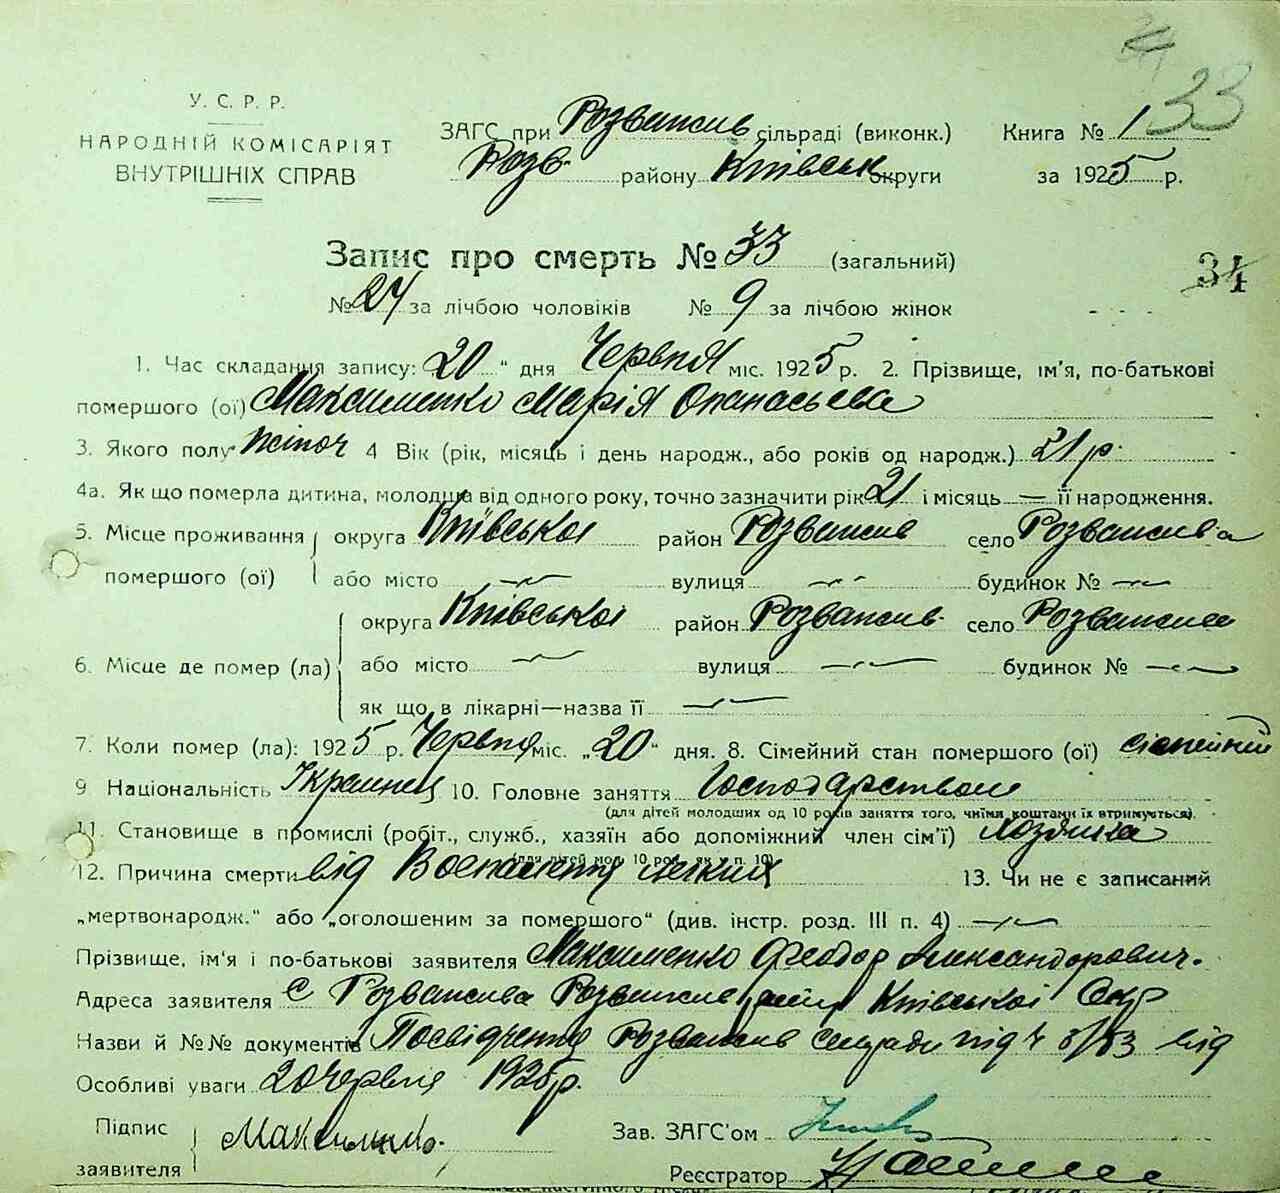 33
У. С. Р. Р.
НАРОДНІЙ КОМІСАРІЯТ
ВНУТРІШНІХ СПРАВ
ЗАГС при Розважив сільраді (виконк.) Книга № 1
Розв. району Київськ округи за 1925 р.
Запис про смерть № 33 (загальний)
34
№ 24 за лічбою чоловіків № 9 за лічбою жінок
1. Час складання запису: 20 " дня Червня міс. 1925 р. 2. Прізвище, ім'я, по-батькові
помершого (ої) Максименко Марія Опанасьева
3. Якого полу жіноч 4 Вік (рік, місяць і день народж., або років од народж.) 21 р.
4а. Як що померла дитина, молодша від одного року, точно зазначити рік 21 і місяць — її народження.
5. Місце проживання округа Київської район Розважив село Розважива
помершого (ої) або місто вулиця будинок №
округа Київської район Розважив село Розважива
6. Місце де помер (ла) або місто вулиця будинок №
як що в лікарні—назва її
7. Коли помер (ла): 1925 р. Червня міс. „20" дня. 8. Сімейний стан помершого (ої) сімейний
9 Національність Украинец 10. Головне заняття Господарством
(для дітей молодших од 10 років заняття того, чиїми коштами їх втримується).
11. Становище в промислі (робіт., служб., хазяїн або допоміжний член сім'ї)
(для дітей мол. 10 рок. як у п. 10)
12. Причина смерти від Воспаления легких 13. Чи не є записаний
„мертвонародж." або „оголошеним за помершого" (див. інстр. розд. III п. 4)
Прізвище, ім'я і по-батькові заявителя Максименко Феодор Александрович.
Адреса заявителя С Розважива Розважив району Київської Окр
Назви й №№ документів Посвідчення Розважив сільради під ч 8/83 від
Особливі уваги 20 червня 1925 р.
Підпис
заявителя Максименко.
Зав. ЗАГС'ом
Реєстратор